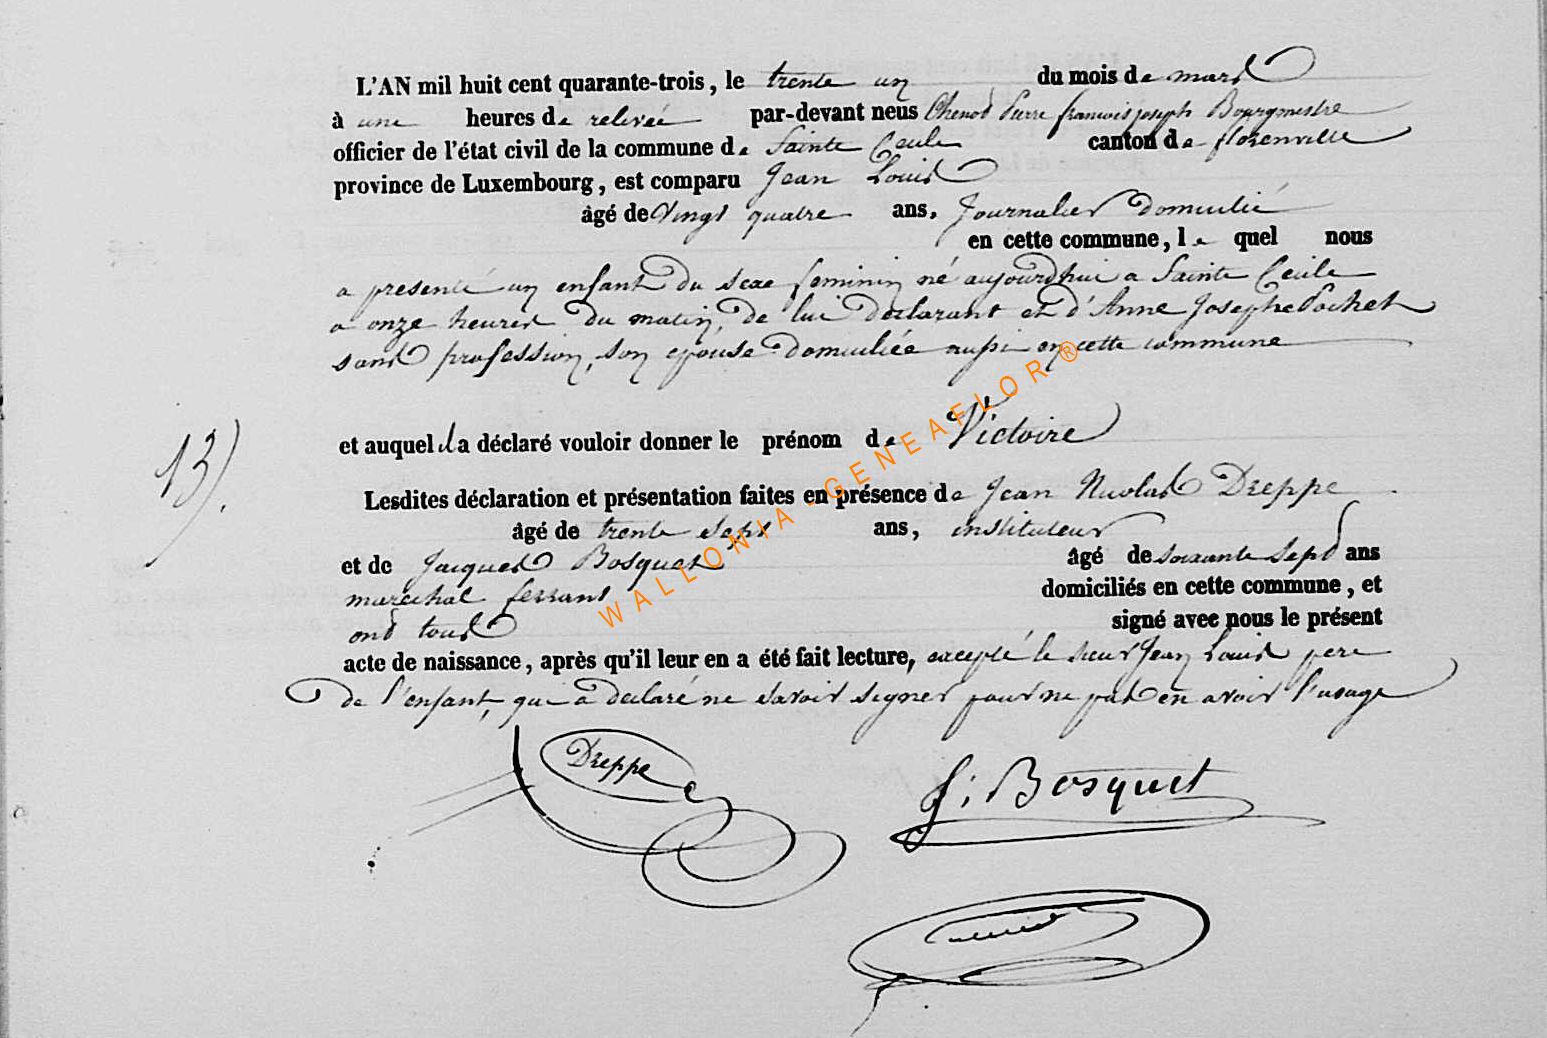 L'AN mil huit cent quarante-trois, le trente un du mois de mars
à une heures de relevée par-devant nous Chenot Pierre françois joseph Bourgmestre
officier de l'état civil de la commune de Sainte Cecile canton de florenville
province de Luxembourg, est comparu Jean Louis
âgé de Vingt quatre ans, Journalier domicilié
en cette commune, le quel nous
a presenté un enfant du sexe feminin né aujourd'hui a Sainte Cecile
a onze heures du matin, de lui declarant et d'Anne Josephe Pochet
sans profession, son epouse domiciliée aussi en cette commune
13).
et auquel il a déclaré vouloir donner le prénom de Victoire
Lesdites déclaration et présentation faites en présence de Jean Nicolas Dreppe
âgé de trente sept ans, instituteur
et de Jacques Bosquet âgé de soixante sept ans
maréchal ferrant domiciliés en cette commune, et
ont tous signé avec nous le présent
acte de naissance, après qu'il leur en a été fait lecture, excepté le sieur Jean Louis pere
de l'enfant, qui a declaré ne savoir signer pour ne pas en avoir l'usage
Dreppe
J: Bosquet
WALLONIA - GENEAFLOR ®